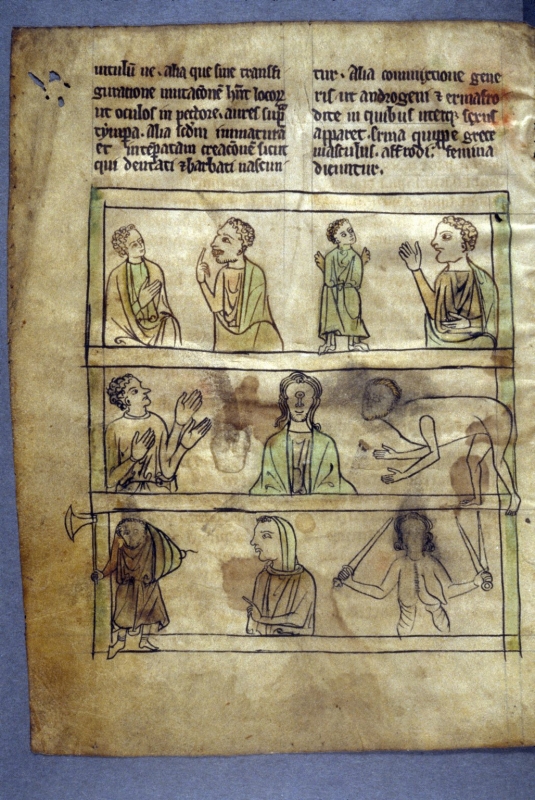 uitulū ue. Alia que sine transfi
guratione mutacōnē hn̄t locoꝝ
ut oculos in pectore. aures sup̄
tympa. Alia scd̄m inmatura
et intēpatam creacōnē sicut
qui dentati ⁊ barbati nascun
tur. Alia commixtione gene
ris ut androgeni ⁊ ermafro
dite in quibus uterq; sexus
apparet. Erma quippe grece
masculus. affrodi: femina
dicuntur.